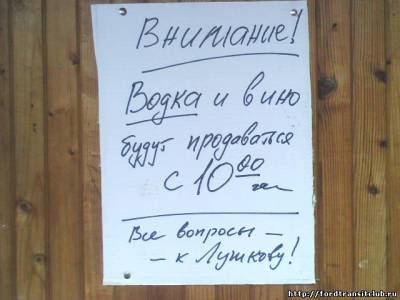 Внимание!
Водка и вино
будут продаваться
с 10⁰⁰ час
Все вопросы –
– к Лужкову!
http://fordtransitclub.ru